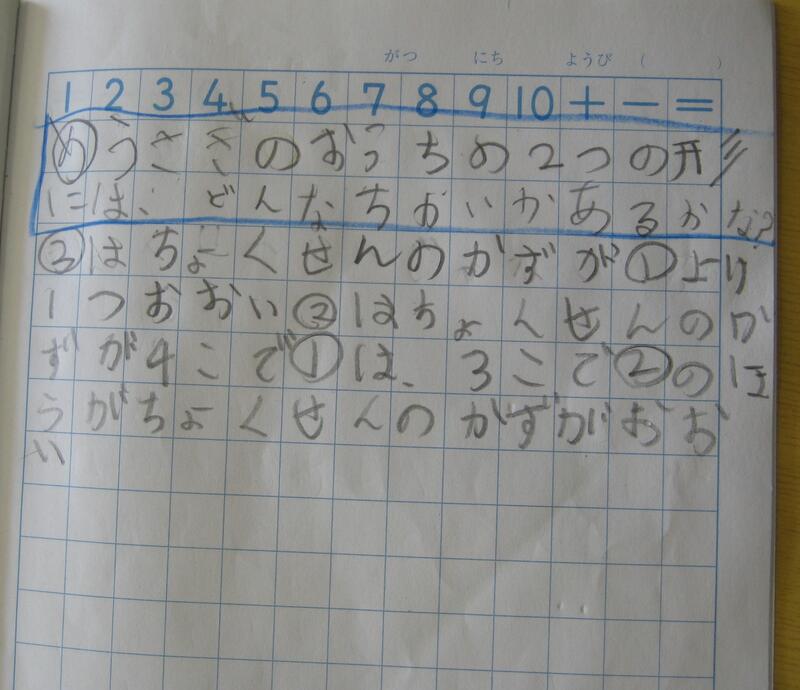 がつ にち ようび ( )
1 2 3 4 5 6 7 8 9 10 + − =
めうさぎのおっちの2つの形
には、どんなちがいがあるかな?
②はちょくせんのかずが①より
1つおおい②はちょくせんのか
ずが4こで①は、3こで②のほ
うがちょくせんのかずがおお
い